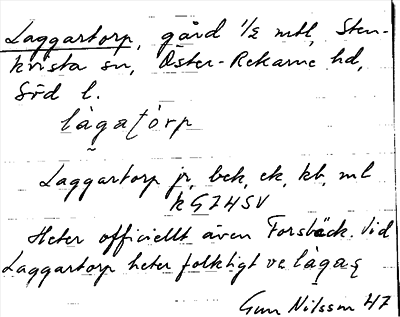 Laggartorp, gård 1/2 mtl, Sten-
kvista sn, Öster-Rekarne hd,
Söd l.
làgaṭórp
Laggartorp jr, bek, ek, kb, ml
kGZHSV
Heter officiellt även Forsbäck. Vid
Laggartorp heter folkligt ve làgaʂ
Gun Nilsson 47